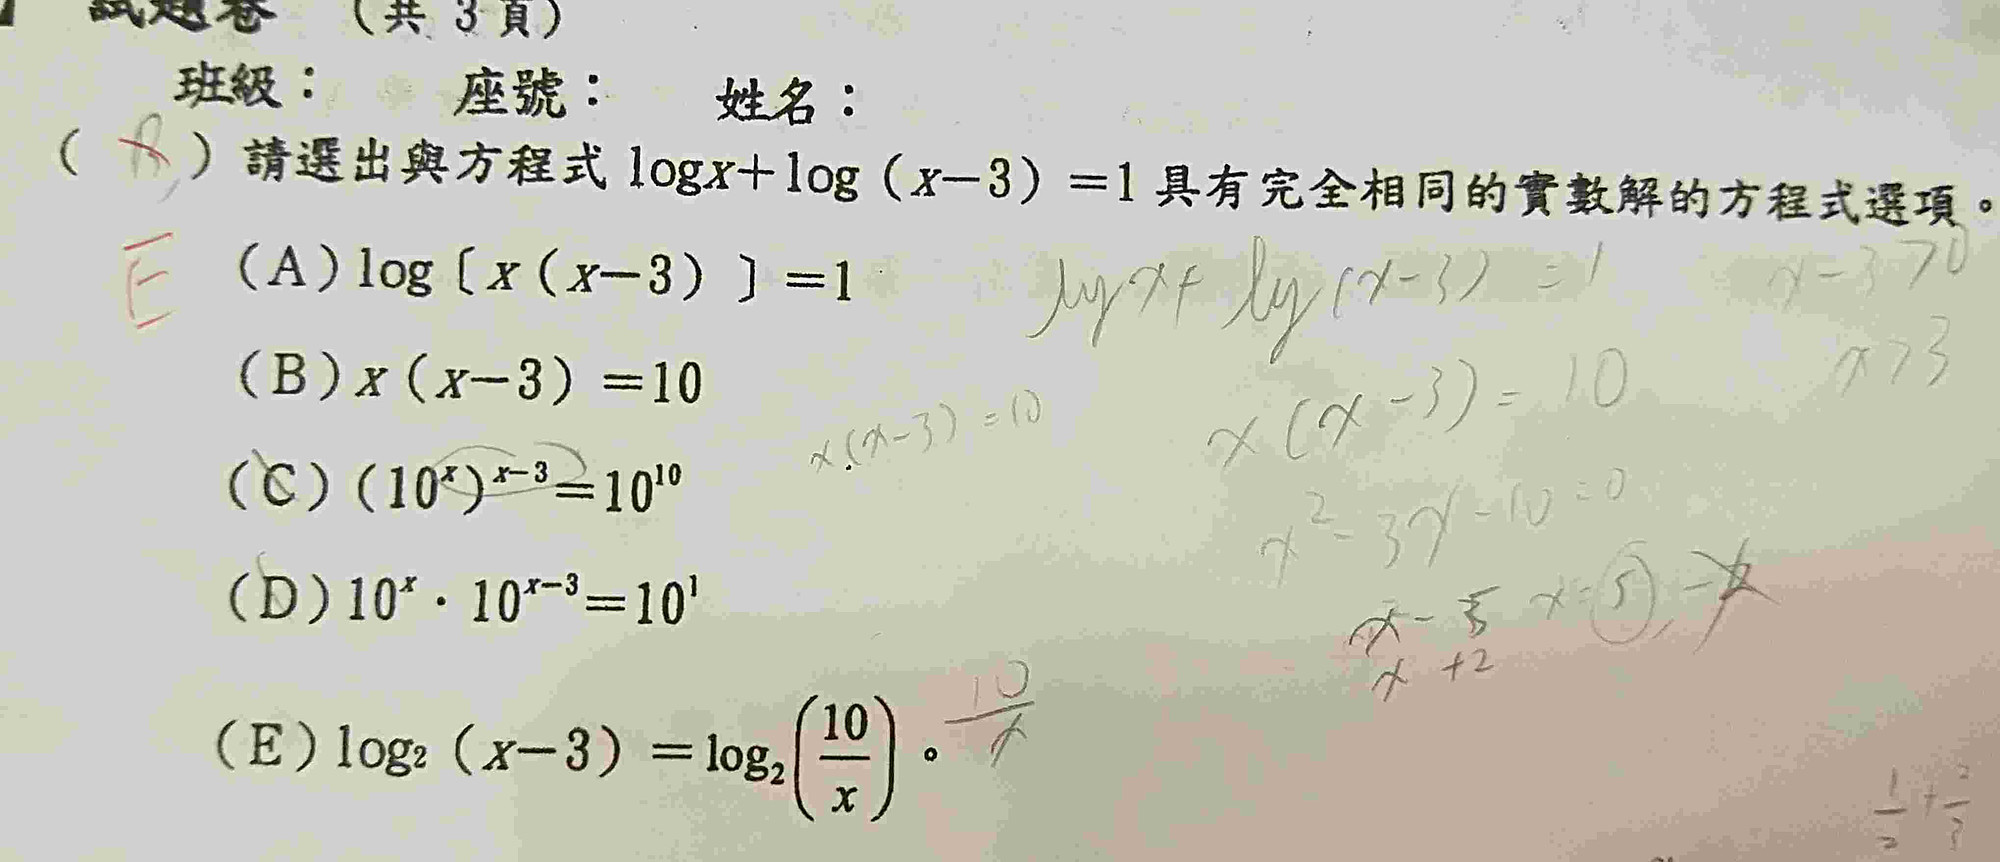 試題卷 (共 3 頁)
班級: 座號: 姓名:
( A ) 請選出與方程式 logx+log (x−3) =1 具有完全相同的實數解的方程式選項。
E
(A) log〔x(x−3)〕=1
(B) x(x−3) =10
(C) (10ˣ)ˣ⁻³=10¹⁰
(D) 10ˣ · 10ˣ⁻³=10¹
(E) log₂ (x−3) =log₂(10/x)。
10/x
x(x−3)=10
logx+ log(x−3) =1
x(x−3)= 10
x²−3x−10=0
x −5 x=5, −2
x +2
x−3>0
x>3